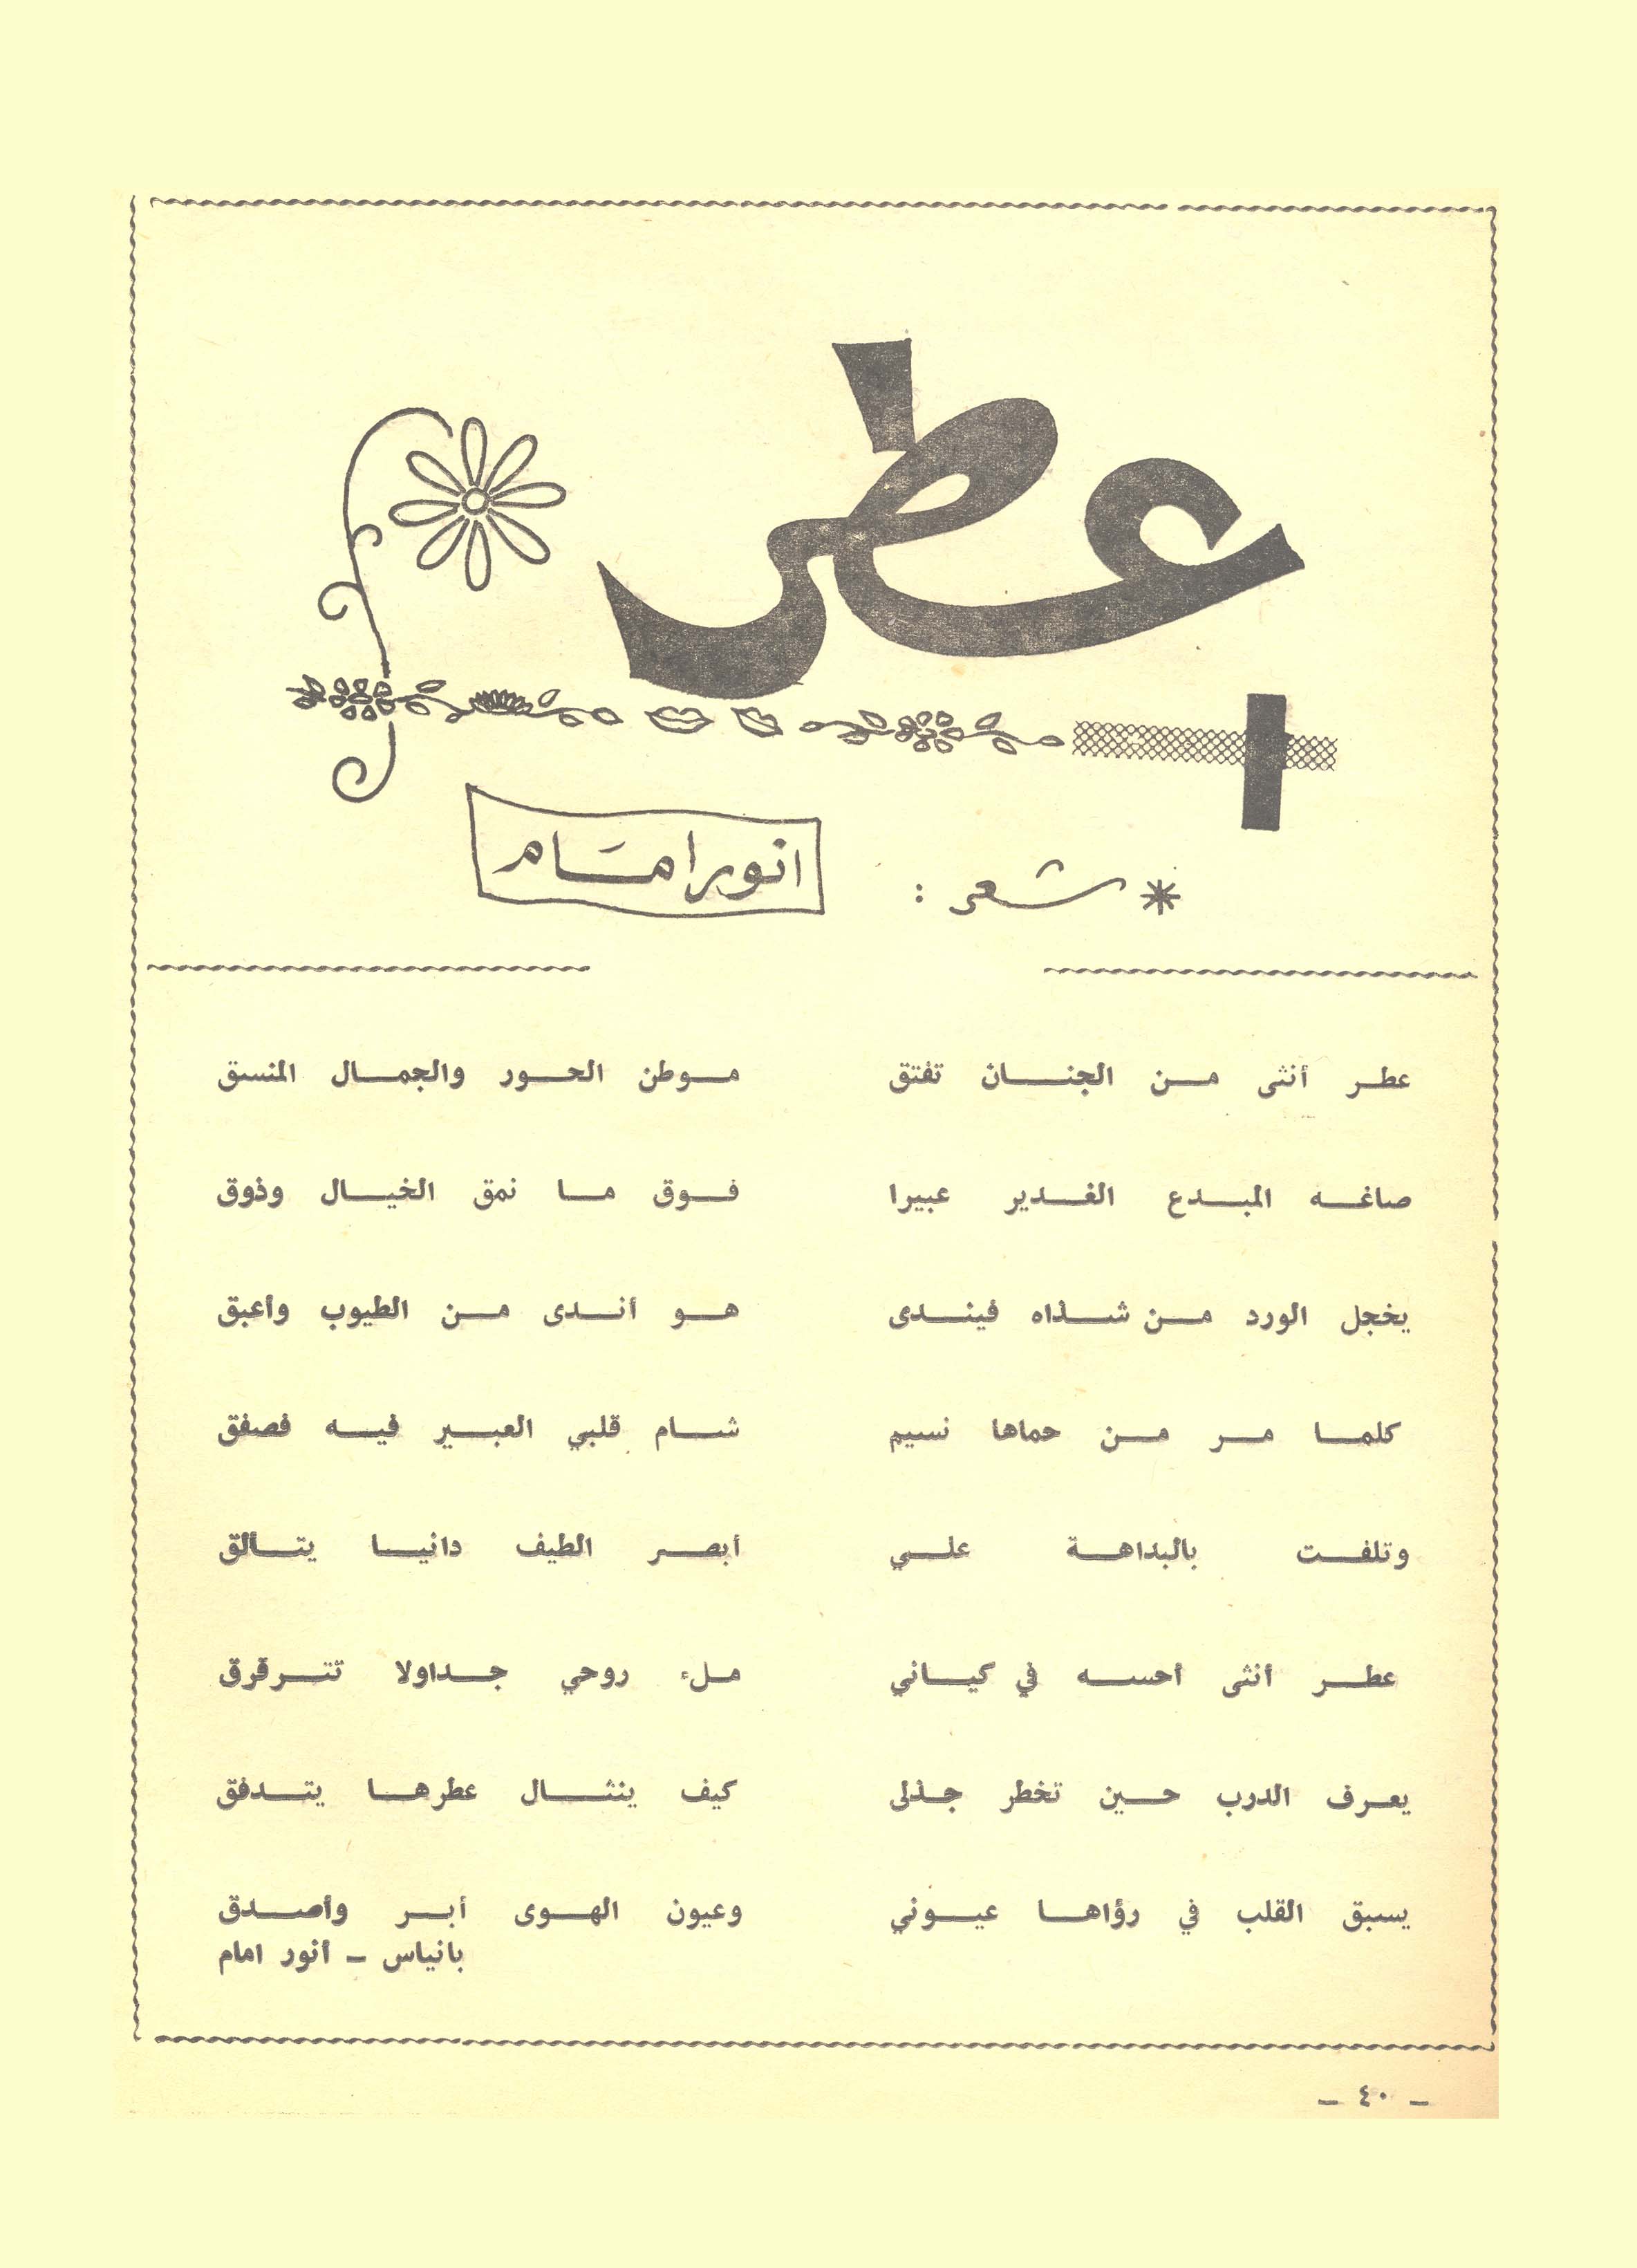 عطر
* شعر : انور امام
عطر أنثى من الجنان تفتق موطن الحور والجمال المنسق
صاغه المبدع الغدير عبيرا فوق ما نمق الخيال وذوق
يخجل الورد من شذاه فيندى هو أندى من الطيوب وأعبق
كلما مر من حماها نسيم شام قلبي العبير فيه فصفق
وتلفت بالبداهة علي أبصر الطيف دانيا يتألق
عطر أنثى أحسه في كياني ملء روحي جداولا تترقرق
يعرف الدرب حين تخطر جذلى كيف ينثال عطرها يتدفق
يسبق القلب في رؤاها عيوني وعيون الهوى أبر وأصدق
بانياس - أنور امام
- ٤٠ -